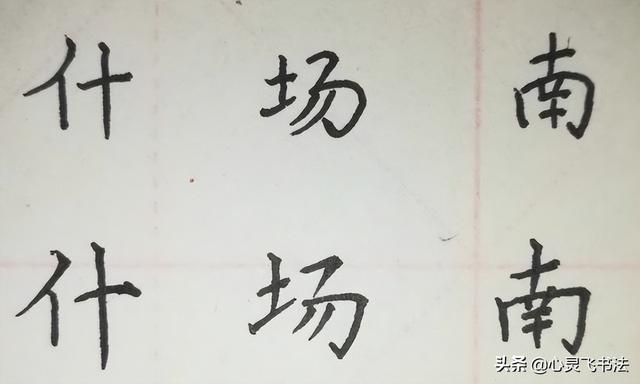 什 场 南
什 场 南
头条 @心灵飞书法